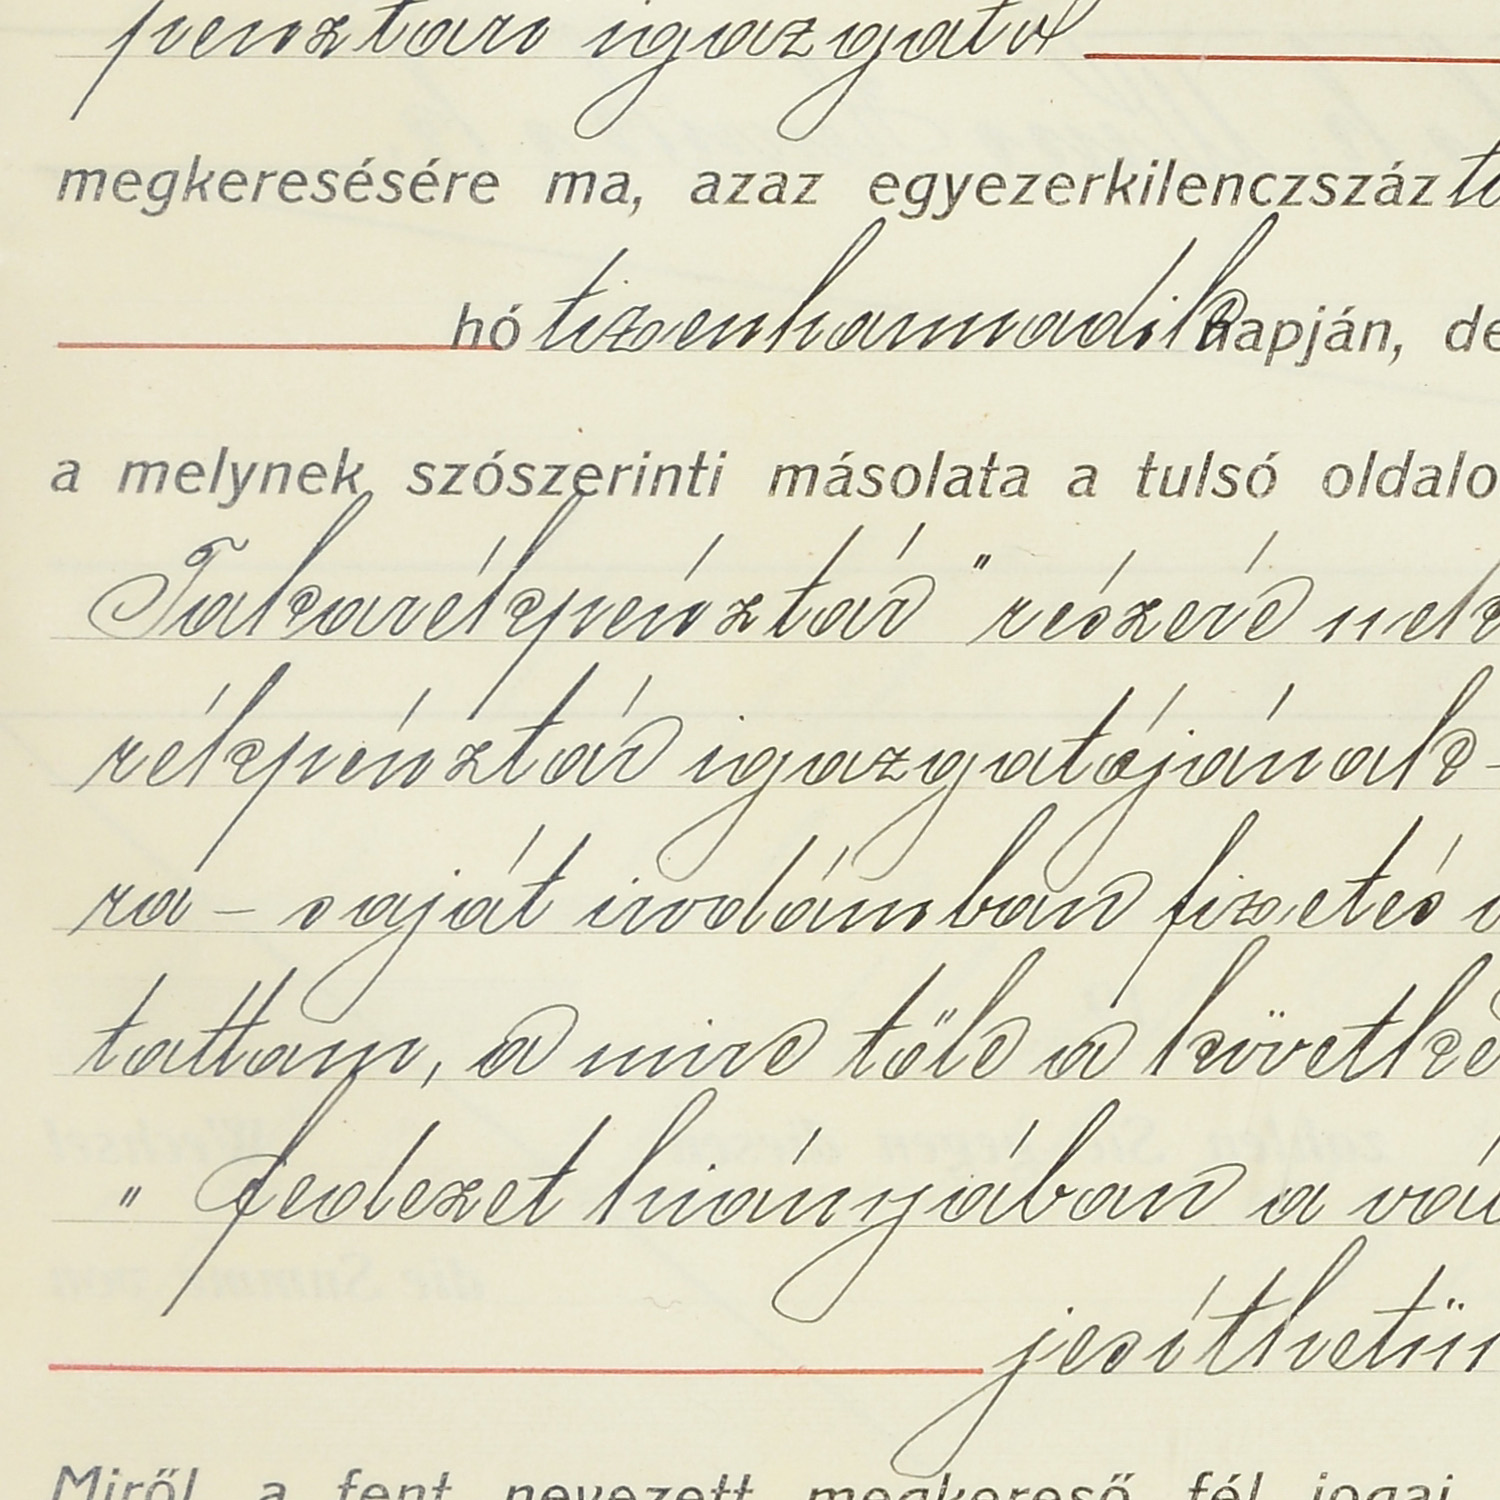 pénztári igazgató
megkeresésére ma, azaz egyezerkilenczszáz
hó tizenharmadik napján, de
a melynek szószerinti másolata a tulsó oldalo
Takarékpénztár" részére nek
rékpénztár igazgatójának -
ra - saját irodámban fizetés v
tattam, a mire tőle a követke
" Fedezet hiányában a vál
jesíthetjü
Miről a fent nevezett megkereső fél jogai